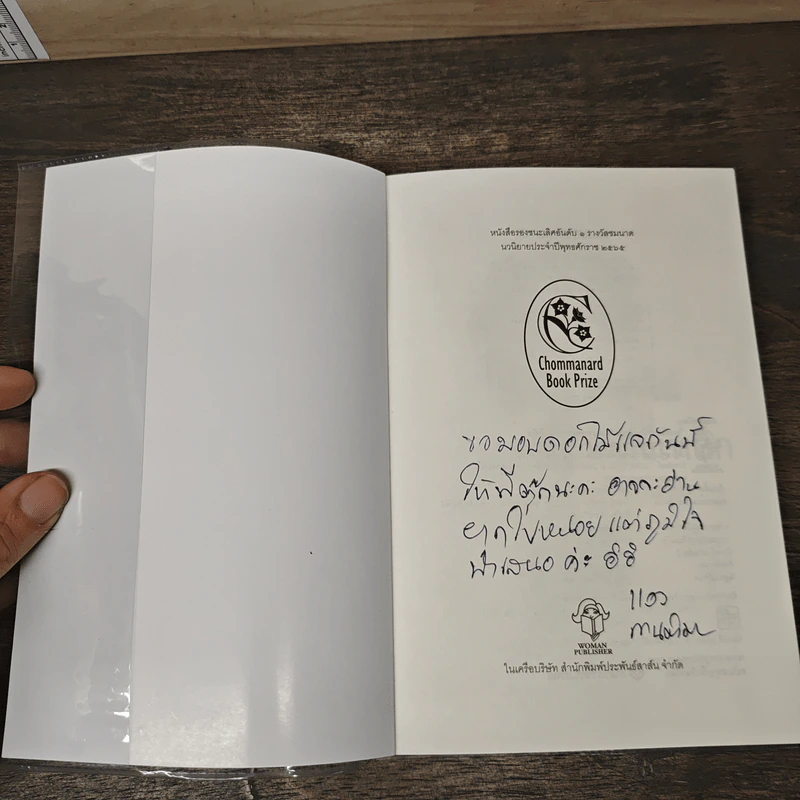 หนังสือรองชนะเลิศอันดับ ๑ รางวัลชมนาด
นวนิยายประจำปีพุทธศักราช ๒๕๖๕
Chommanard
Book Prize
ขอมอบดอกไม้และกันนี้
ให้พี่ตุ๊กนะคะ อาจจะอ่าน
ยากไปหน่อย แต่ภูมิใจ
นำเสนอ ค่ะ อิอิ
WOMAN
PUBLISHER
ในเครือบริษัท สำนักพิมพ์ประพันธ์สาส์น จำกัด